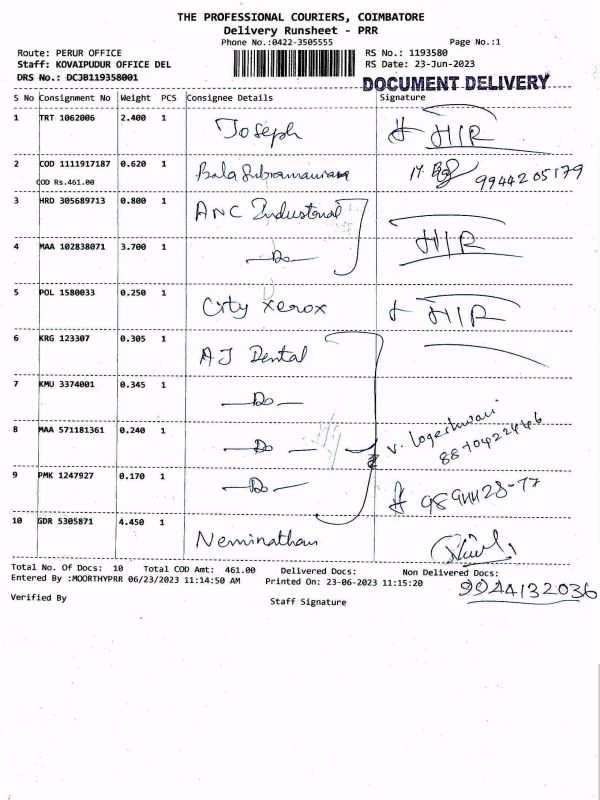 THE PROFESSIONAL COURIERS, COIMBATORE
Delivery Runsheet - PRR
Phone No.:0422-3505555 Page No.:1
Route: PERUR OFFICE RS No.: 1193580
Staff: KOVAIPUDUR OFFICE DEL RS Date: 23-Jun-2023
DRS No.: DCJB119358001 DOCUMENT DELIVERY
S No Consignment No Weight PCS Consignee Details Signature
1 TRT 1062006 2.400 1 Joseph HIR
2 COD 1111917187 0.620 1 Bala Subramaniam 9944205179
COD Rs.461.00
3 HRD 305689713 0.800 1 ANC Industorial
4 MAA 102838071 3.700 1 —Do— HIR
5 POL 1580033 0.250 1 City Xerox HIR
6 KRG 123307 0.305 1 AJ Dental
7 KMU 3374001 0.345 1 —Do—
8 MAA 571181361 0.240 1 —Do— V. Logeshwari
9 PMK 1247927 0.170 1 —Do—
10 GDR 5305871 4.450 1 Neminathan
Total No. Of Docs: 10 Total COD Amt: 461.00 Delivered Docs: Non Delivered Docs:
Entered By :MOORTHYPRR 06/23/2023 11:14:50 AM Printed On: 23-06-2023 11:15:20 9044132036
Verified By Staff Signature